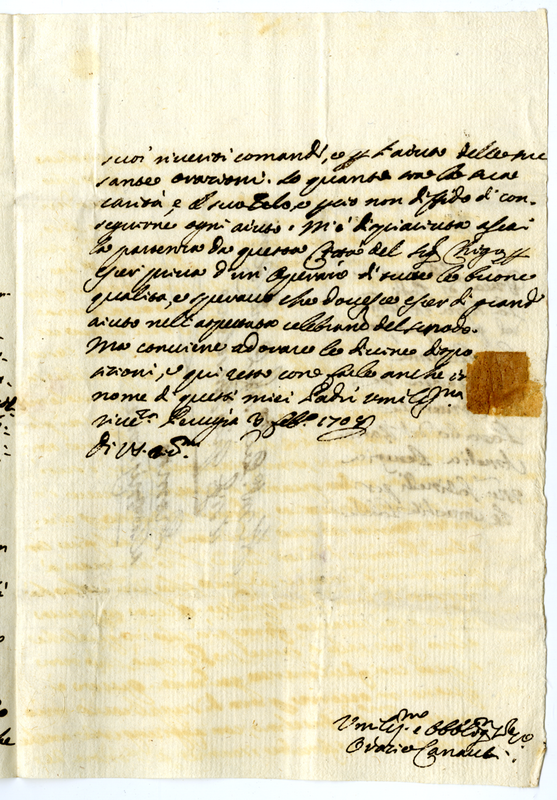 suoi riveriti comandi, e p l'aiuto delle sue
sante orazioni. So quanta sia la sua
carità, e il suo zelo, e perciò non diffido di con-
seguirne ogni aiuto. Mi è dispiaciuta assai
la partenza da questa Città del Sig.
esser priva d'un Operario di tutte le buone
qualità, e speravo che dovesse esser di grand
aiuto nell'aspettata celebrane del sinodo.
Ma conviene adorare le divine dispo
sizioni, e qui resto con farle anche in
nome di questi miei Padri umilissma
rivza. Perugia 3 febo. 170
Di V.
Umilismo e Obblig
Orazio